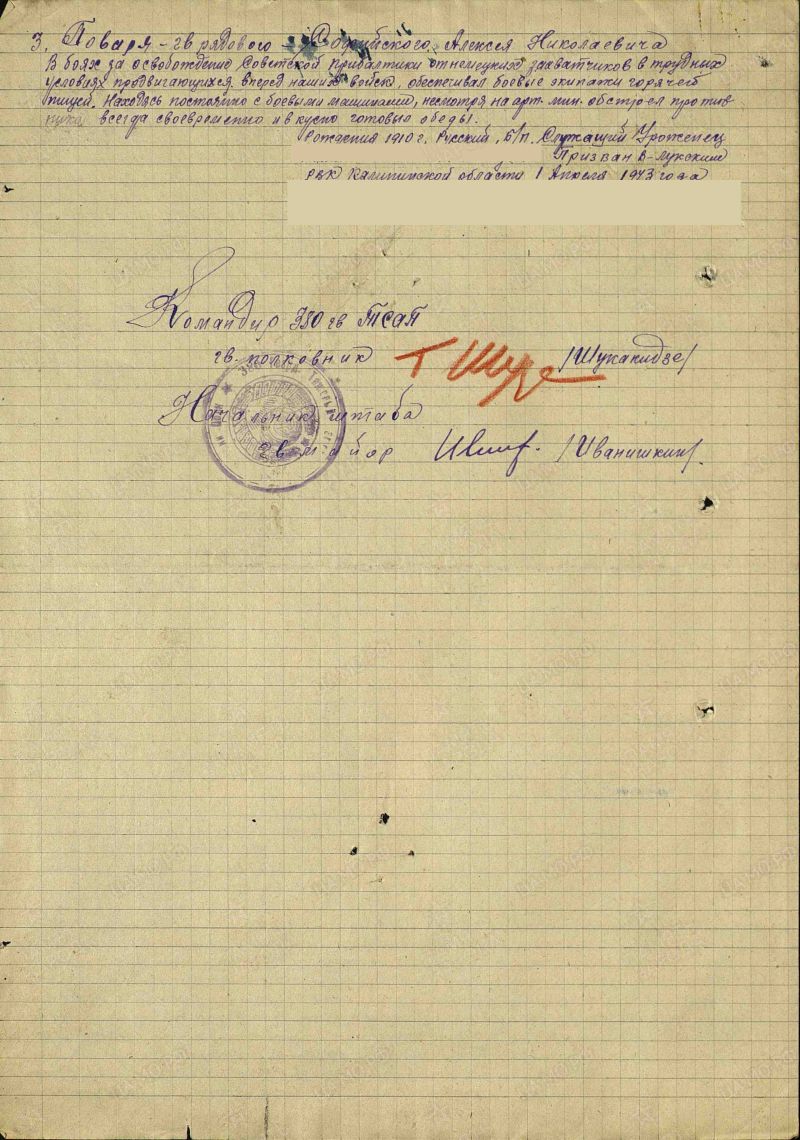 3. Повара - гв рядового - Софийского Алексея Николаевича
В боях за освобождение Советской Прибалтики от немецких захватчиков в трудных
условиях продвигающихся вперед наших войск, обеспечивал боевые экипажи горячей
пищей. Находясь постоянно с боевыми машинами, несмотря на арт. мин. обстрел против
ника всегда своевременно и вкусно готовит обеды.
Рождения 1910 г, Русский, б/п. Служащий Уроженец
Призван В-Лукским
РВК Калининской области 1 Апреля 1943 года
Командир 380 гв ТСАП
гв. полковник /Шупакидзе/
Начальник штаба
гв майор /Иванишкин/.